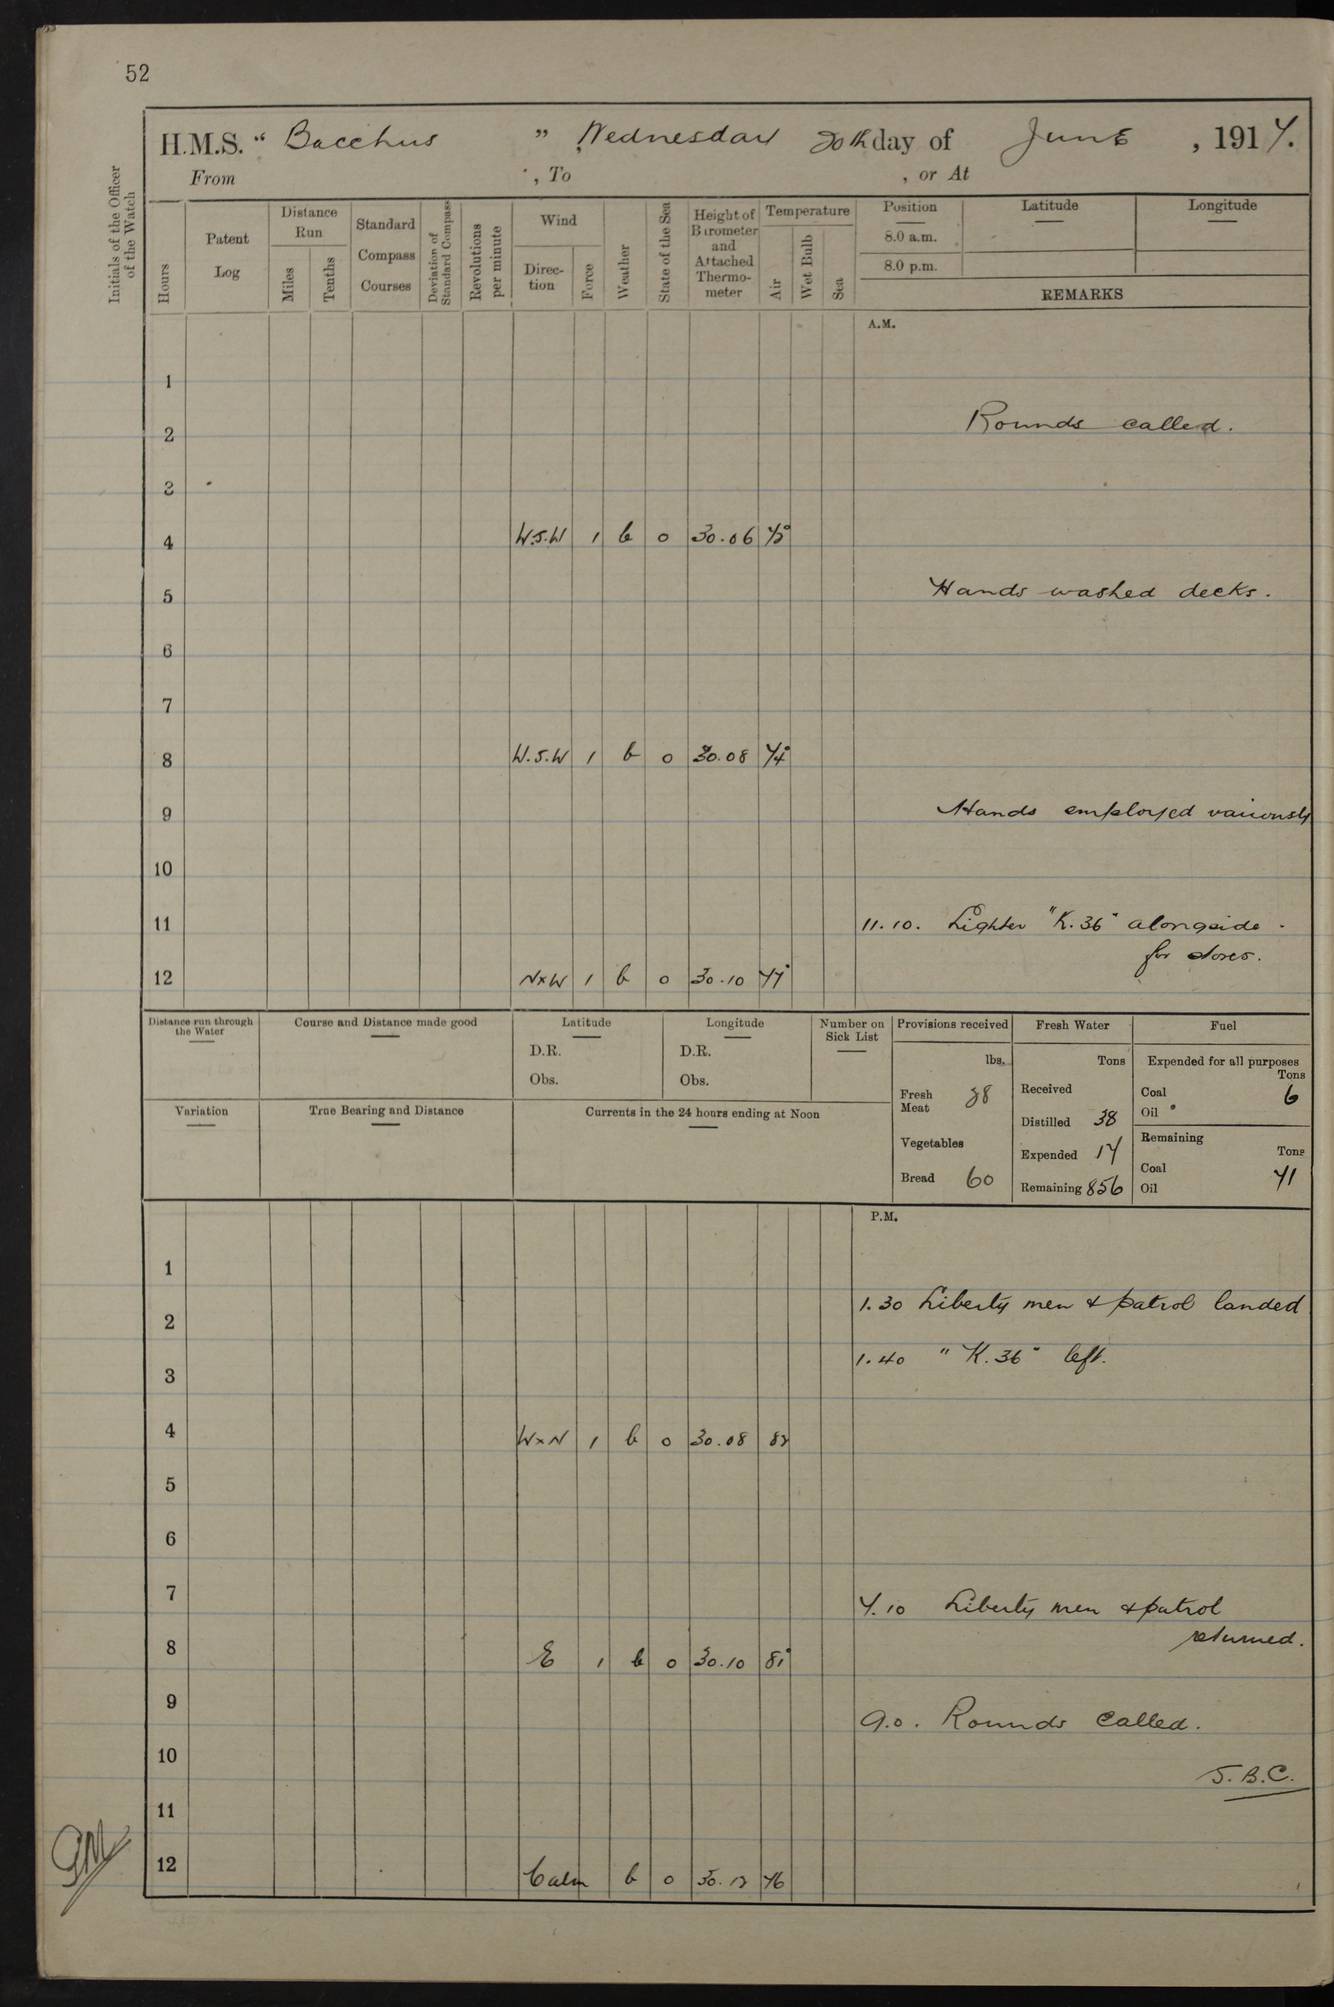 52
H.M.S. " Bacchus " Wednesday 20th day of June , 1917.
From , To , or At
Initials of the Officer of the Watch
Hours
Patent Log
Distance Run
Miles
Tenths
Standard Compass Courses
Deviation of Standard Compass
Revolutions per minute
Wind
Direction
Force
Weather
State of the Sea
Height of Barometer and Attached Thermometer
Temperature
Air
Wet Bulb
Sea
Position
8.0 a.m.
8.0 p.m.
Latitude
Longitude
REMARKS
A.M.
1
2 Rounds called.
3
4 W.S.W 1 b 0 30.06
5 Hands washed decks.
6
7
8 W.S.W 1 b 0 30.08 74°
9 Hands employed variously
10
11 11.10. Lighter "K.36" alongside -
for stores.
12 N×W 1 b 0 30.10 77°
Distance run through the Water
Course and Distance made good
Latitude
D.R.
Obs.
Longitude
D.R.
Obs.
Number on Sick List
Provisions received
lbs.
Fresh Meat 38
Vegetables
Bread 60
Fresh Water
Tons
Received
Distilled 38
Expended 17
Remaining 856
Fuel
Expended for all purposes
Tons
Coal 6
Oil
Remaining
Tons
Coal 71
Oil
Variation
True Bearing and Distance
Currents in the 24 hours ending at Noon
P.M.
1
2 1.30 Liberty men & patrol landed
3 1.40 "K.36" left.
4 W×N 1 b 0 30.08 82
5
6
7 7.10 Liberty men & patrol
returned.
8 E 1 b 0 30.10 81°
9 9.0. Rounds called.
10 J.B.C.
11
12 Calm b 0 30.12 76